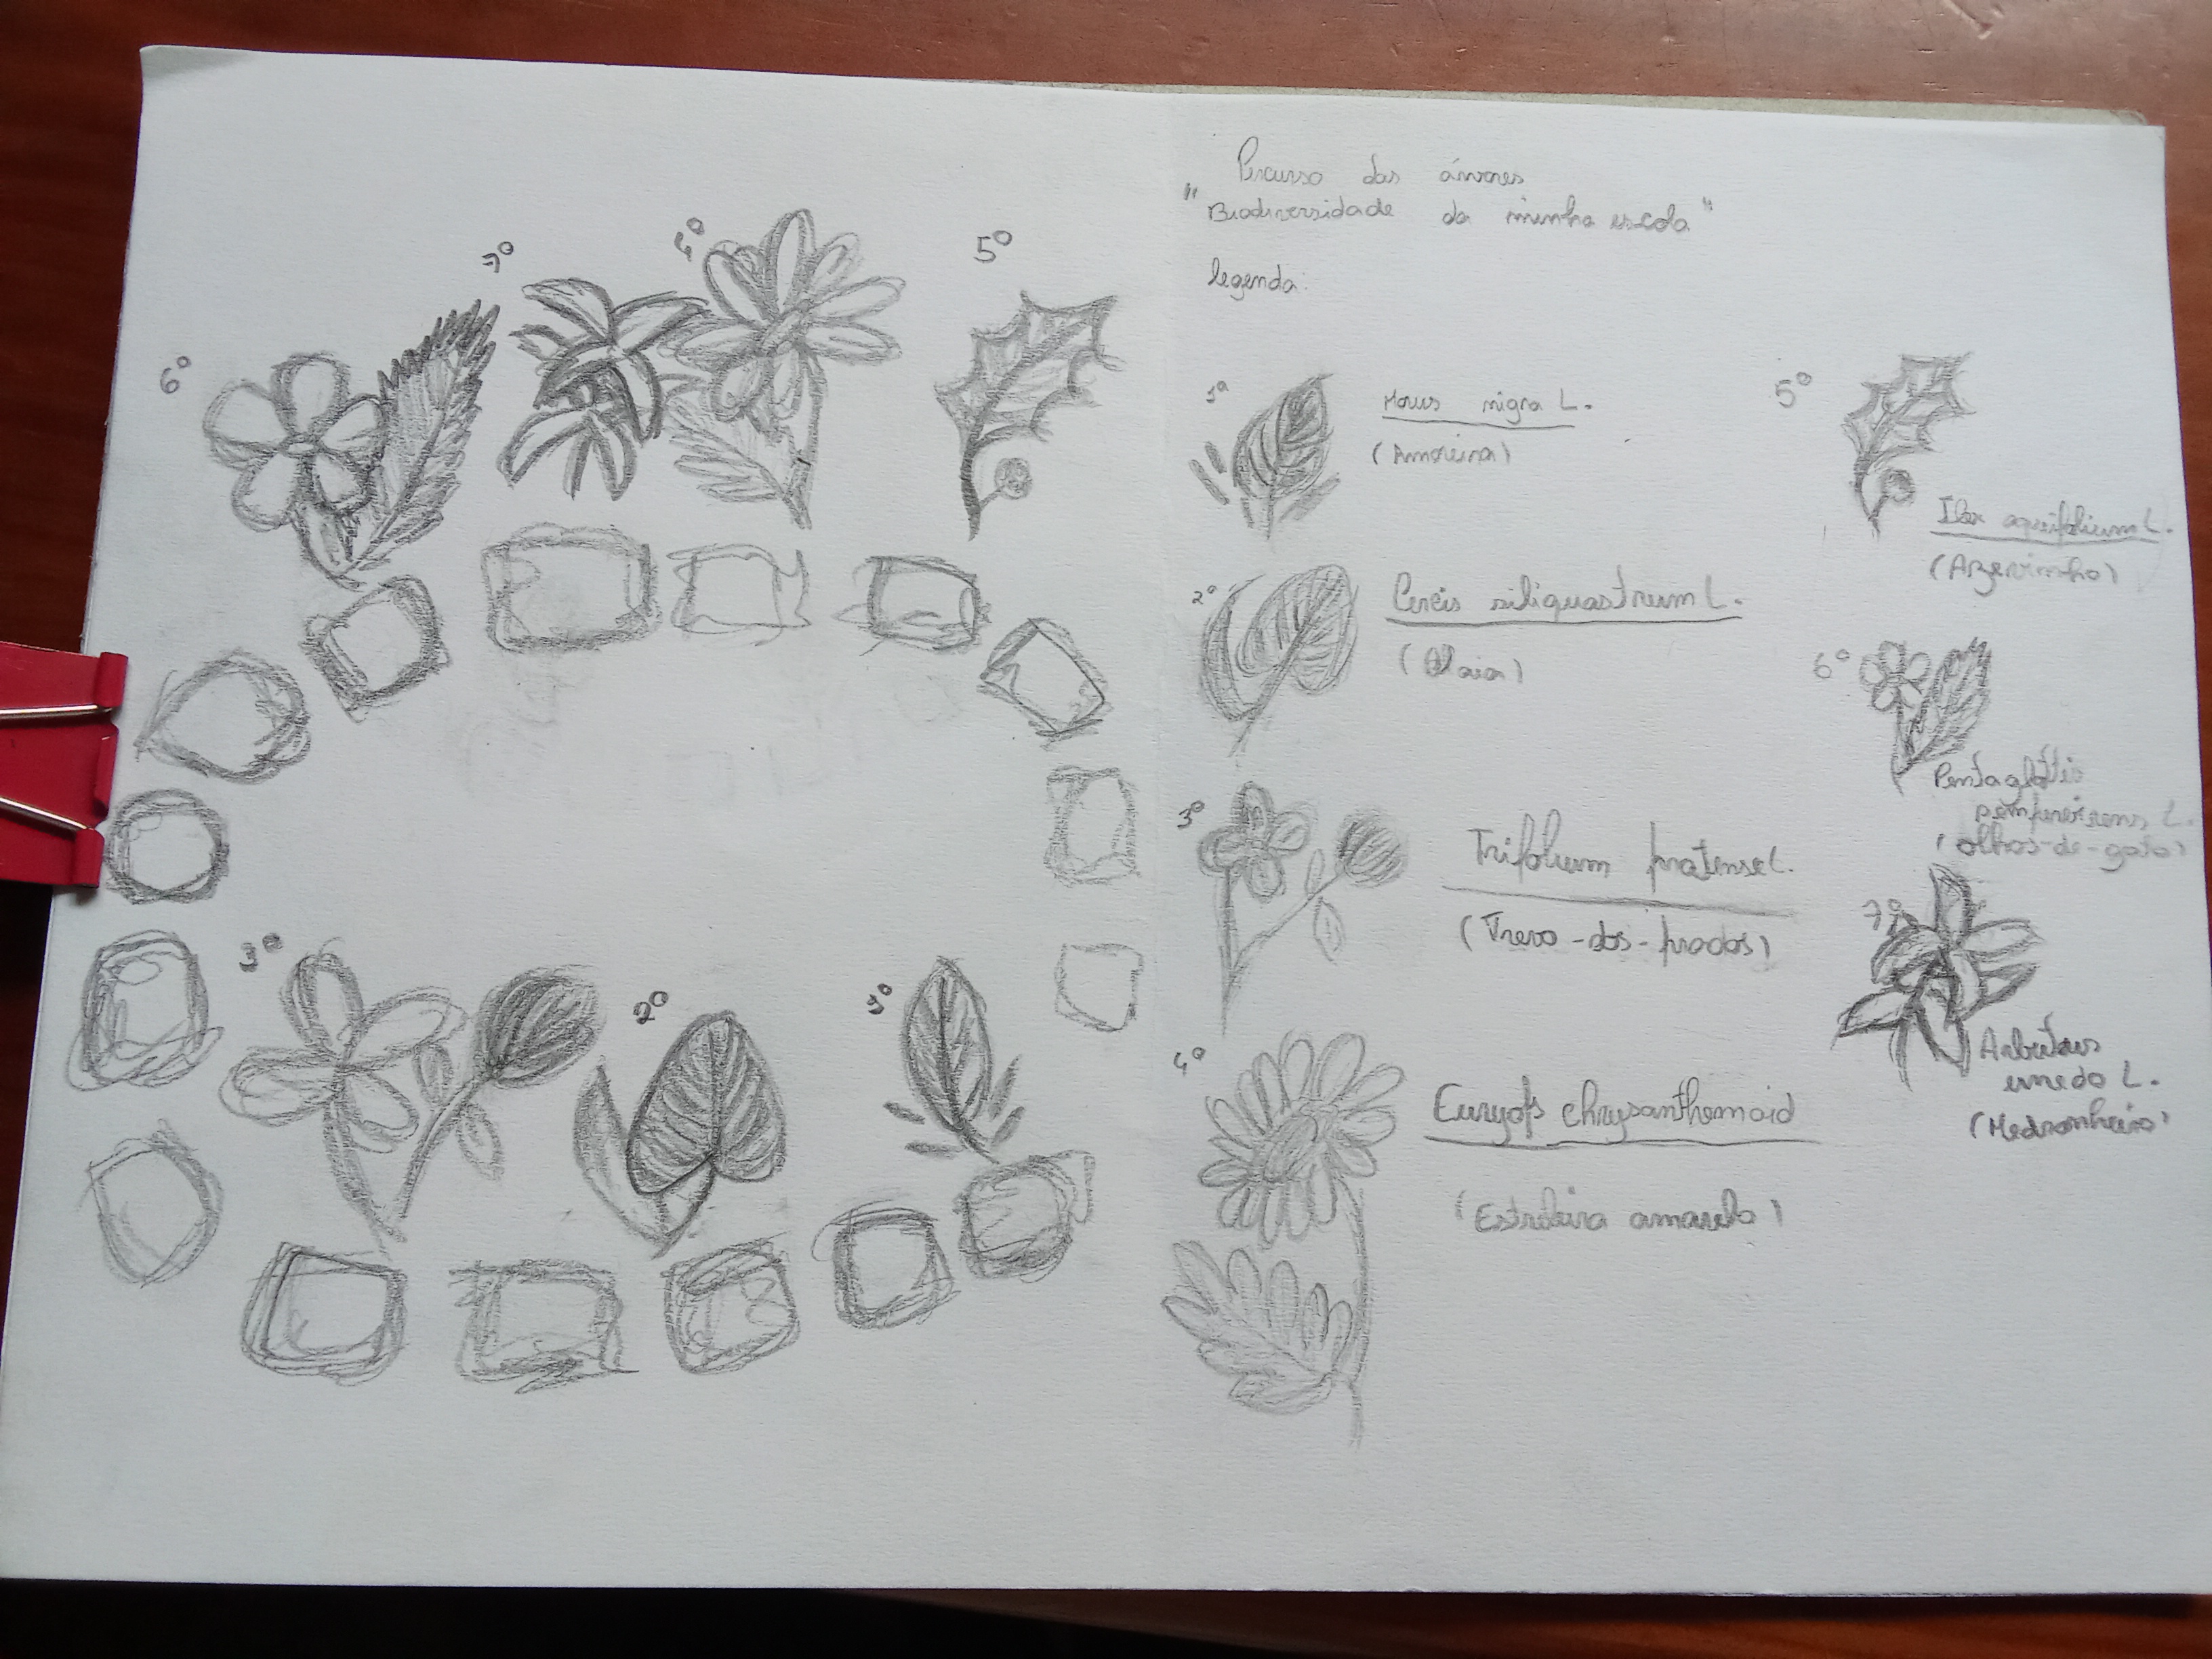 Percurso das árvores
"Biodiversidade da minha escola"
legenda:
6º
7º
4º
5º
3º
2º
1º
1º
Morus nigra L.
(Amoreira)
2º
Cercis siliquastrum L.
(Olaia)
3º
Trifolium pratense L.
(Trevo-dos-prados)
4º
Euryops chrysanthemoid
(Estreleira amarela)
5º
Ilex aquifolium L.
(Azevinho)
6º
Pentaglottis
L.
(olhos-de-gato)
7º
Arbutus
unedo L.
(Medronheiro)